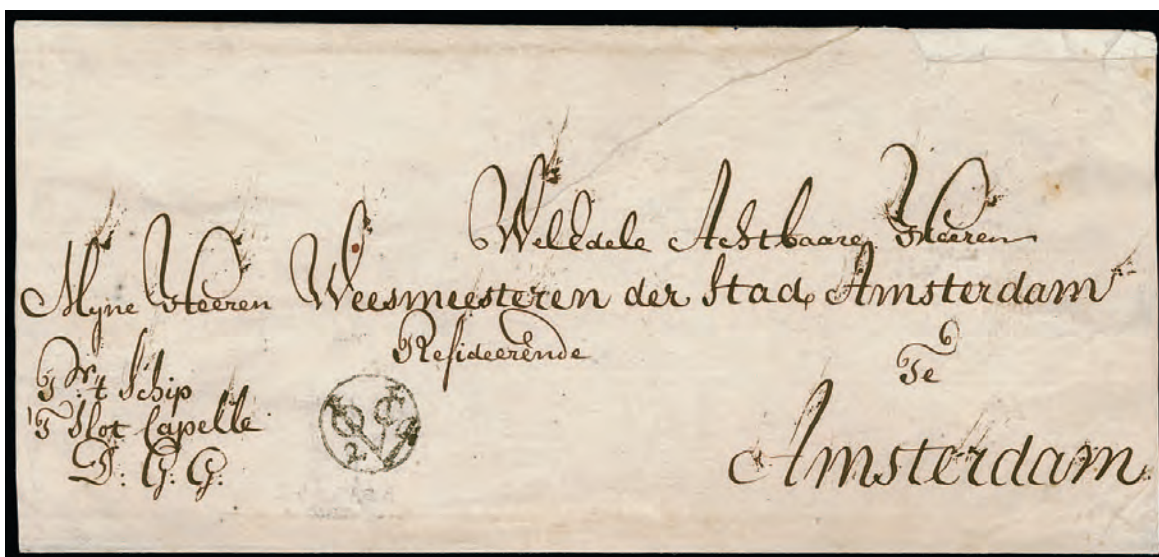 Weledele Achtbaare Heeren
Myne Heeren Weesmeesteren der Stad Amsterdam
Resideerende
Te
Amsterdam
Pr. 't Schip
'T Slot Capelle
D: G: G:
VOC
2